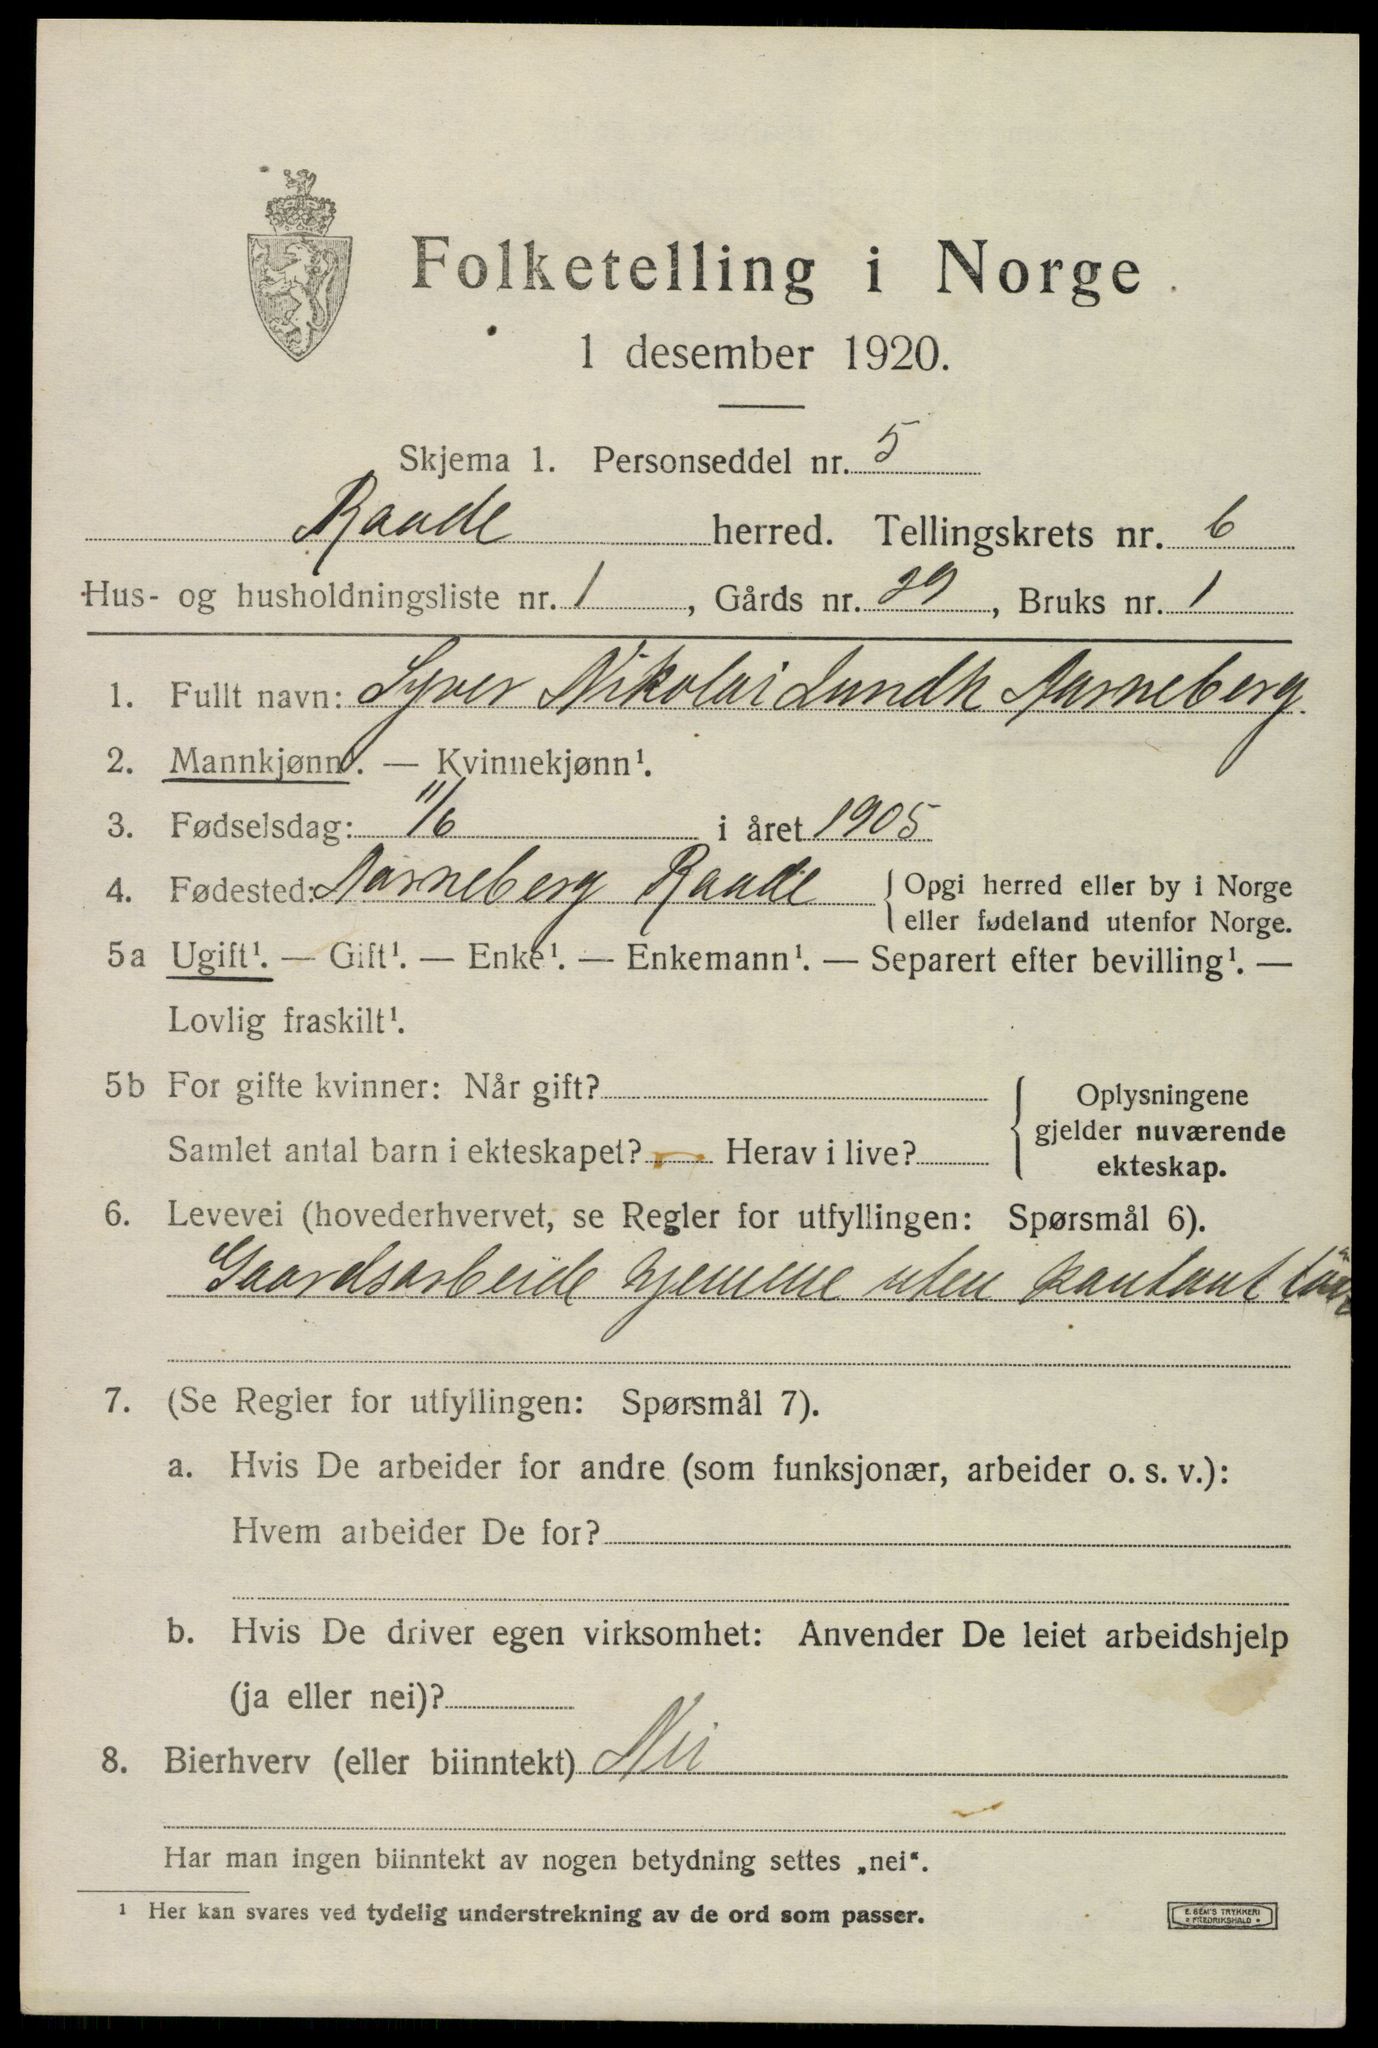 Folketelling i Norge
1 desember 1920.
Skjema 1. Personseddel nr. 5
Raade herred. Tellingskrets nr. 6
Hus- og husholdningsliste nr. 1, Gårds nr. 29, Bruks nr. 1
1. Fullt navn: Syver Nikolai Lundh Aarneberg.
2. Mannkjønn¹. — Kvinnekjønn¹.
3. Fødselsdag: 11/6 i året 1905
4. Fødested: Aarneberg Raade { Opgi herred eller by i Norge
eller fødeland utenfor Norge.
5a Ugift¹. — Gift¹. — Enke¹. — Enkemann¹. — Separert efter bevilling¹. —
Lovlig fraskilt¹.
5b For gifte kvinner: Når gift?
Samlet antal barn i ekteskapet? Herav i live?
Oplysningene
gjelder nuværende
ekteskap.
6. Levevei (hovederhvervet, se Regler for utfyllingen: Spørsmål 6).
Gaardsarbeide hjemme uten kontant
7. (Se Regler for utfyllingen: Spørsmål 7).
a. Hvis De arbeider for andre (som funksjonær, arbeider o. s. v.):
Hvem arbeider De for?
b. Hvis De driver egen virksomhet: Anvender De leiet arbeidshjelp
(ja eller nei)?
8. Bierhverv (eller biinntekt) Nei
Har man ingen biinntekt av nogen betydning settes „nei“.
¹ Her kan svares ved tydelig understrekning av de ord som passer.
E. SEM'S TRYKKERI
FREDRIKSHALD